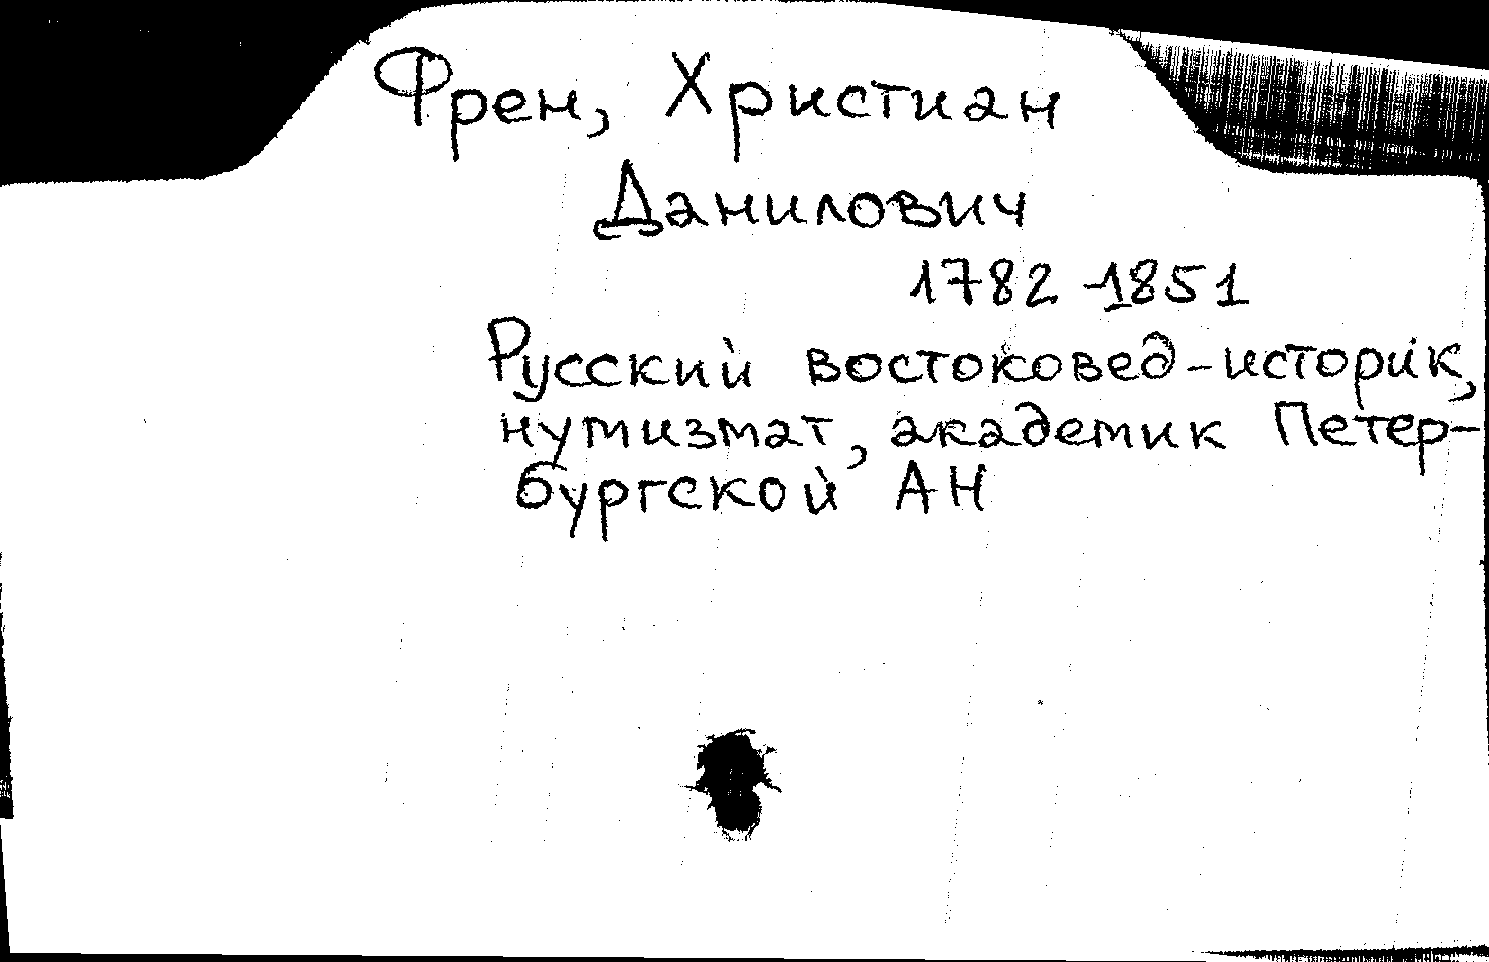 Френ, Христиан
Данилович
1782-1851
Русский востоковед-историк,
нумизмат, академик Петер-
бургской АН